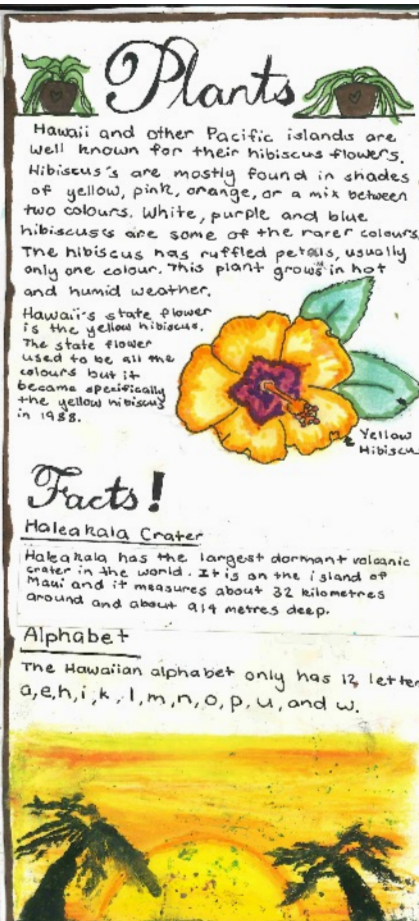 Plants
Hawaii and other Pacific islands are
well known for their hibiscus flowers.
Hibiscus's are mostly found in shades
of yellow, pink, orange, or a mix between
two colours. White, purple and blue
hibiscus's are some of the rarer colours.
The hibiscus has ruffled petals, usually
only one colour. This plant grows in hot
and humid weather.
Hawaii's state flower
is the yellow hibiscus.
The state flower
used to be all the
colours but it
became spexifically
the yellow hibiscus
in 1988.
Yellow
Hibiscu
Facts!
Haleakala Crater
Haleakala has the largest dormant volcanic
crater in the world. It is on the island of
Maui and it measures about 32 kilometres
around and about 914 metres deep.
Alphabet
The Hawaiian alphabet only has 12 letter
a,e,h,i,k,l,m,n,o,p,u, and w.